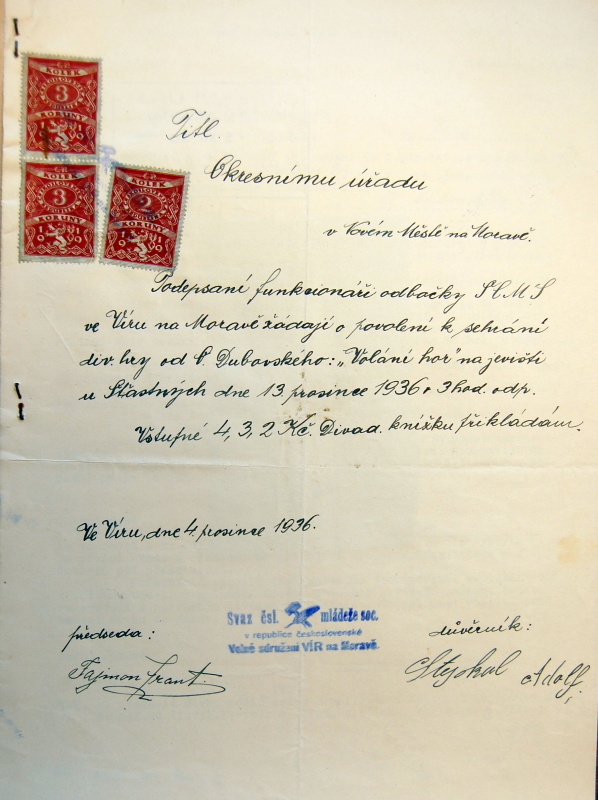 ČR
KOLEK
3
KORUNY
1919
ČR
KOLEK
3
KORUNY
1919
KOLEK
2
KORUNY
1919
Titl.
Okresnímu úřadu
v Novém Městě na Moravě.
Podepsaní funkcionáři odbočky
ve Víru na Moravě žádají o povolení k sehrání
div. hry od Dubovského: „Volání hor" na jevišti
u Šťastných dne 13. prosince 1936 o 3 hod. odp.
Vstupné 4, 3, 2 Kč. Divad. knížku přikládám.
Ve Víru, dne 4. prosince 1936.
Svaz čsl. mládeže soc.
v republice československé
Volné sdružení VÍR na Moravě.
předseda:
důvěrník:
Fajmon Frant.
Stejskal Adolf